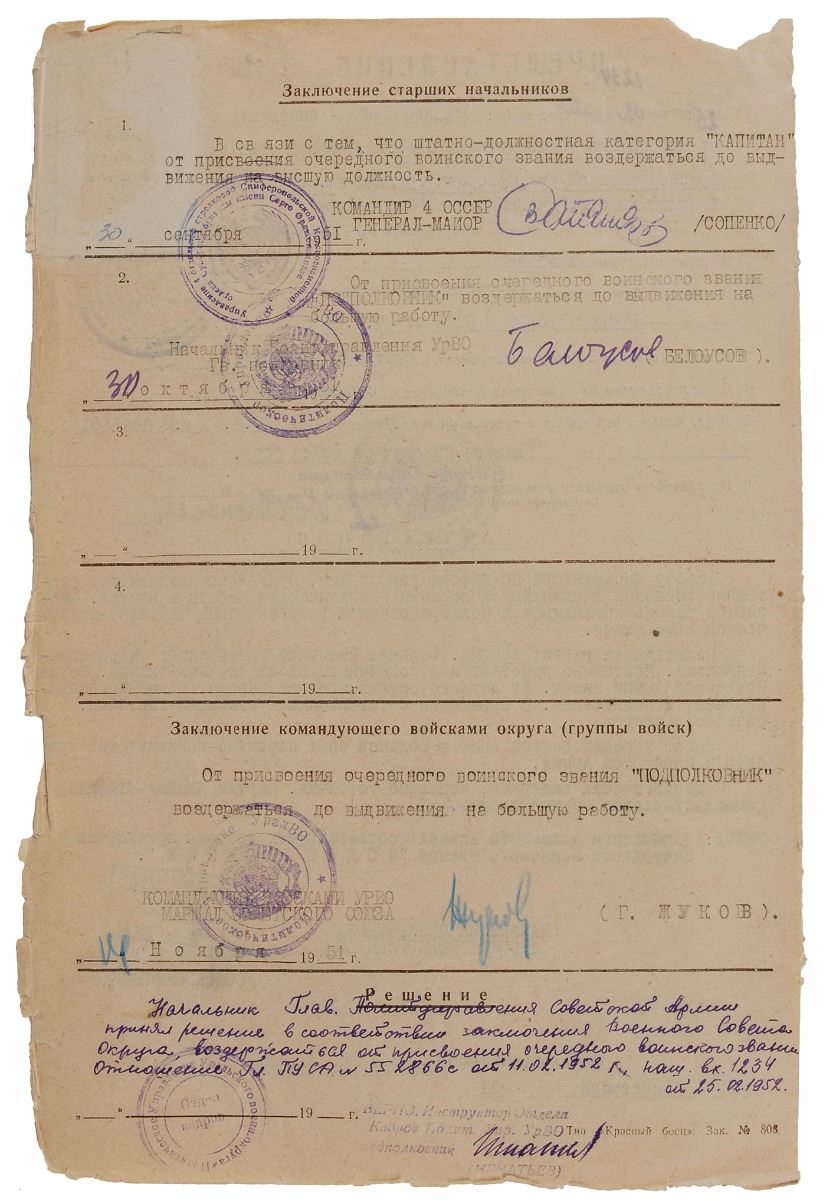 Заключение старших начальников
1.
В связи с тем, что штатно-должностная категория "КАПИТАН"
от присвоения очередного воинского звания воздержаться до выд-
вижения на высшую должность.
КОМАНДИР 4 ОССБР
ГЕНЕРАЛ-МАЙОР /СОПЕНКО/
„ 30 “ сентября 51 г.
2.
От присвоения очередного воинского звания
"ПОДПОЛКОВНИК" воздержаться до выдвижения на
большую работу.
Начальник Политуправления УрВО
Гв. полковник Белоусов ( БЕЛОУСОВ ).
„ 30 “ октября 1951
3.
„ — “ 19 — г.
4.
„ — “ 19 — г.
Заключение командующего войсками округа (группы войск)
От присвоения очередного воинского звания "ПОДПОЛКОВНИК"
воздержаться до выдвижения на большую работу.
КОМАНДУЮЩИЙ ВОЙСКАМИ УРВО
МАРШАЛ СОВЕТСКОГО СОЮЗА Жуков ( Г. ЖУКОВ ).
Ноября 1951 г.
Решение
Начальник Глав. Политуправления Советской Армии
принял решение в соответствии заключения Военного Совета
Округа, воздержаться от присвоения очередного воинского звания
Отношение Гл. ПУСА № 552866с от 11.02.1952 г., наш вх. 1234
от 25.02.1952.
„ — “ 19 — г.
ВЕРНО. Инструктор Отдела
Кадров Полит. Упр. УрВО
подполковник
(ИГНАТЬЕВ)
Тип „Красный боец“ Зак. № 808
Отдел
кадров